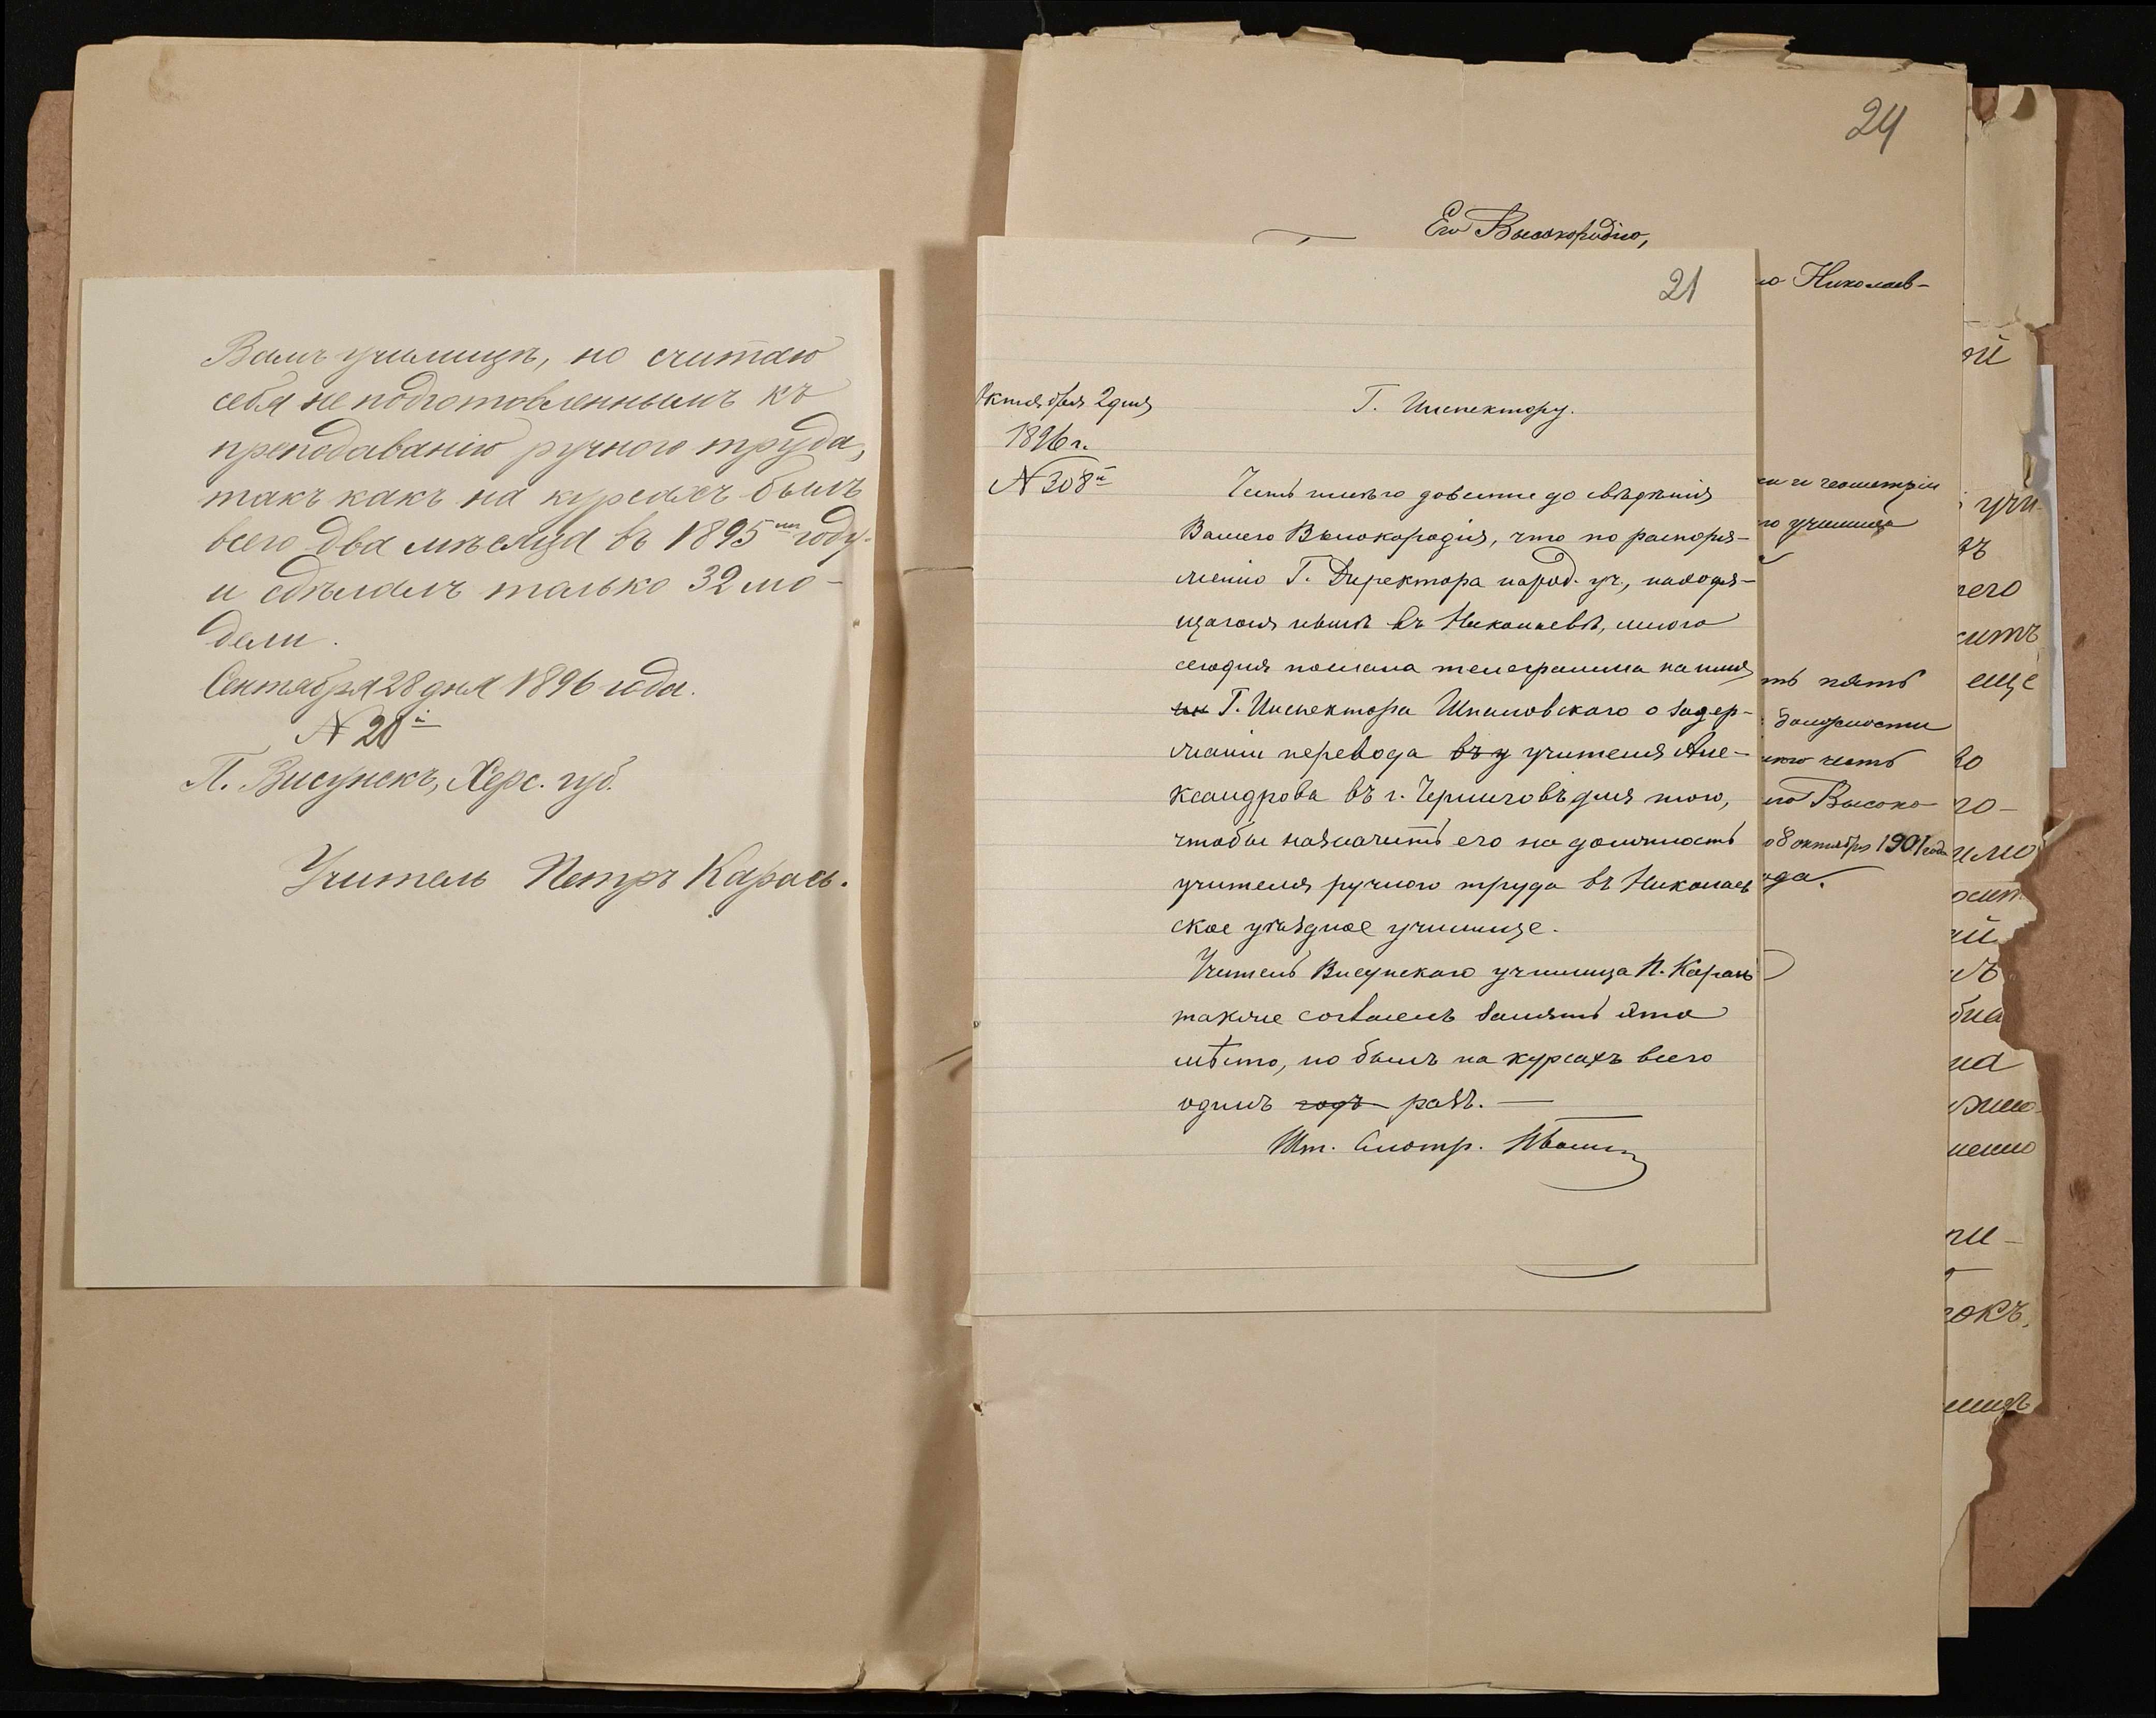 Вамъ училищѣ, но считаю
себя неподготовленнымъ къ
преподаванію ручного труда,
такъ какъ на курсахъ былъ
всего два мѣсяца въ 1895 году
и сдѣлалъ только 32 мо-
дели.
Сентября 28 дня 1896 года.
N 20й
П. Висунскъ, Херс. губ.
Учитель Петръ Карась.
24
Его Высокородію,
Николаев-
21
Октября 2 дня
1896 г.
N 308й
Г. Инспектору.
Честь имѣю довести до свѣдѣнія
Вашего Высокородія, что по распоря-
женію Г. Директора народ. уч., находя-
щагося нынѣ въ Николаевѣ, мною
сегодня послана телеграмма на имя
Г. Инспектора Шпановскаго о задер-
жаніи перевода въ у учителя Але-
ксандрова въ г. Черниговъ для того,
чтобы назначить его на должность
учителя ручного труда въ Николаев
ское уѣздное училище.
Учитель Висунскаго училища П. Карась
также согласенъ занять это
мѣсто, но былъ на курсахъ всего
одинъ годъ разъ.
Шт. Смотр.
и геометріи
училища
пять
должности
честь
Высоко
8 октября 1901 года
ода.
учи
его
еще
го-